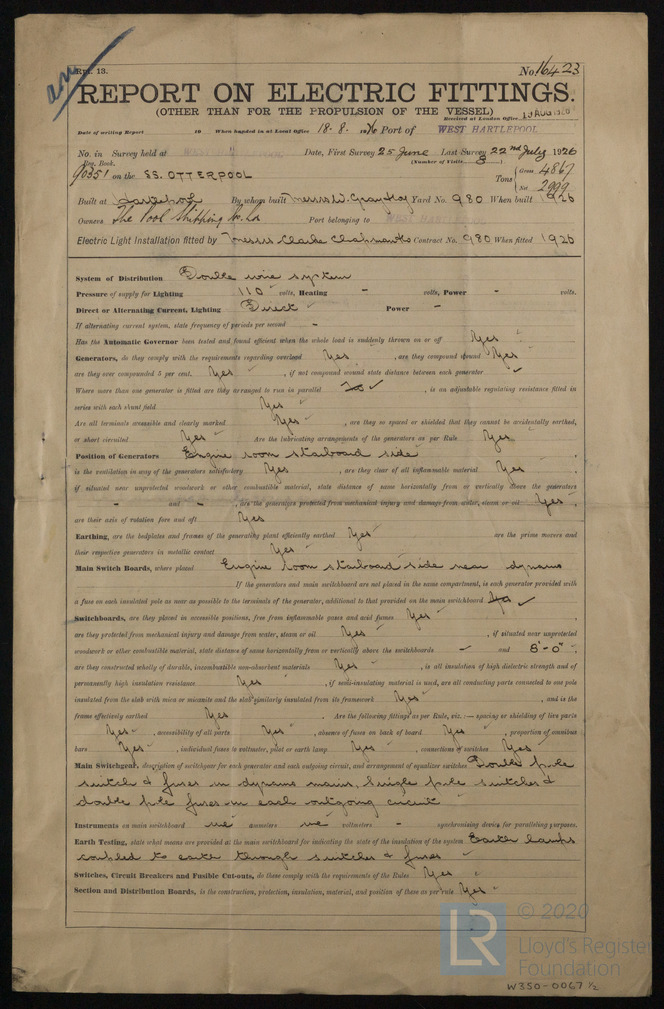 Rpt. 13. No. 16423
REPORT ON ELECTRIC FITTINGS.
(OTHER THAN FOR THE PROPULSION OF THE VESSEL)
Received at London Office 19 AUG 1926
Date of writing Report 19 When handed in at Local Office 18.8.1926 Port of WEST HARTLEPOOL
No. in Survey held at Date, First Survey 25 June Last Survey 22nd July 1926
Reg. Book. (Number of Visits 8)
90351 on the SS. OTTERPOOL Tons { Gross 4867
Net 2999
Built at Hartlepool By whom built Messrs W. Gray & Co Yard No. 980 When built 1926
Owners The Pool Shipping Co. Ld Port belonging to WEST HARTLEPOOL
Electric Light Installation fitted by Messrs Clarke Chapman & Co Contract No. 980 When fitted 1926
System of Distribution Double wire system
Pressure of supply for Lighting 110 volts, Heating - volts, Power - volts.
Direct or Alternating Current, Lighting Direct Power -
If alternating current system, state frequency of periods per second -
Has the Automatic Governor been tested and found efficient when the whole load is suddenly thrown on or off Yes
Generators, do they comply with the requirements regarding overload Yes, are they compound wound Yes
are they over compounded 5 per cent. Yes, if not compound wound state distance between each generator
Where more than one generator is fitted are they arranged to run in parallel, is an adjustable regulating resistance fitted in
series with each shunt field Yes
Are all terminals accessible and clearly marked Yes, are they so spaced or shielded that they cannot be accidentally earthed,
or short circuited Yes Are the lubricating arrangements of the generators as per Rule Yes
Position of Generators Engine room starboard side
is the ventilation in way of the generators satisfactory Yes, are they clear of all inflammable material Yes
if situated near unprotected woodwork or other combustible material, state distance of same horizontally from or vertically above the generators
- and -, are the generators protected from mechanical injury and damage from water, steam or oil Yes,
are their axis of rotation fore and aft Yes
Earthing, are the bedplates and frames of the generating plant efficiently earthed Yes are the prime movers and
their respective generators in metallic contact Yes
Main Switch Boards, where placed Engine room starboard side near dynamo
If the generators and main switchboard are not placed in the same compartment, is each generator provided with
a fuse on each insulated pole as near as possible to the terminals of the generator, additional to that provided on the main switchboard Yes
Switchboards, are they placed in accessible positions, free from inflammable gases and acid fumes Yes
are they protected from mechanical injury and damage from water, steam or oil Yes, if situated near unprotected
woodwork or other combustible material, state distance of same horizontally from or vertically above the switchboards - and 8'-0"
are they constructed wholly of durable, incombustible non-absorbent materials Yes, is all insulation of high dielectric strength and of
permanently high insulation resistance Yes, if semi-insulating material is used, are all conducting parts connected to one pole
insulated from the slab with mica or micanite and the slab similarly insulated from its framework Yes, and is the
frame effectively earthed Yes. Are the following fittings as per Rule, viz.:— spacing or shielding of live parts
Yes, accessibility of all parts Yes, absence of fuses on back of board Yes, proportion of omnibus
bars Yes, individual fuses to voltmeter, pilot or earth lamp Yes, connections of switches Yes
Main Switchgear, description of switchgear for each generator and each outgoing circuit, and arrangement of equalizer switches Double pole
switch & fuses in dynamo mains, Single pole switches &
double pole fuses in each outgoing circuit
Instruments on main switchboard one ammeters one voltmeters - synchronising device for paralleling purposes.
Earth Testing, state what means are provided at the main switchboard for indicating the state of the insulation of the system Earth lamps
coupled to earth through switches & fuses
Switches, Circuit Breakers and Fusible Cut-outs, do these comply with the requirements of the Rules Yes
Section and Distribution Boards, is the construction, protection, insulation, material, and position of these as per rule Yes
© 2020
LR Lloyd's Register
Foundation
W350-0067 1/2